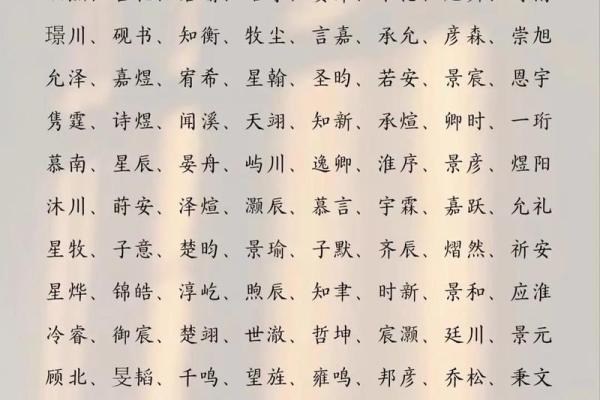 璟川、砚书、知衡、牧尘、言嘉、承允、彦森、崇旭
允泽、嘉煜、宥希、星翰、圣昀、若安、景宸、恩宇
隽霆、诗煜、闻溪、天翊、知新、承煊、卿时、一珩
慕南、星辰、晏舟、屿川、逸卿、淮序、景彦、煜阳
沐川、莳安、泽煊、灏辰、慕言、宇霖、嘉跃、允礼
星牧、子意、楚昀、景瑜、子默、齐辰、熠然、祈安
星烨、锦皓、淳屹、煦辰、知聿、时新、景和、应淮
冷睿、御宸、楚翊、世澈、哲坤、宸灏、廷川、景元
顾北、旻韬、千鸣、望旌、雍鸣、邦彦、乔松、秉文